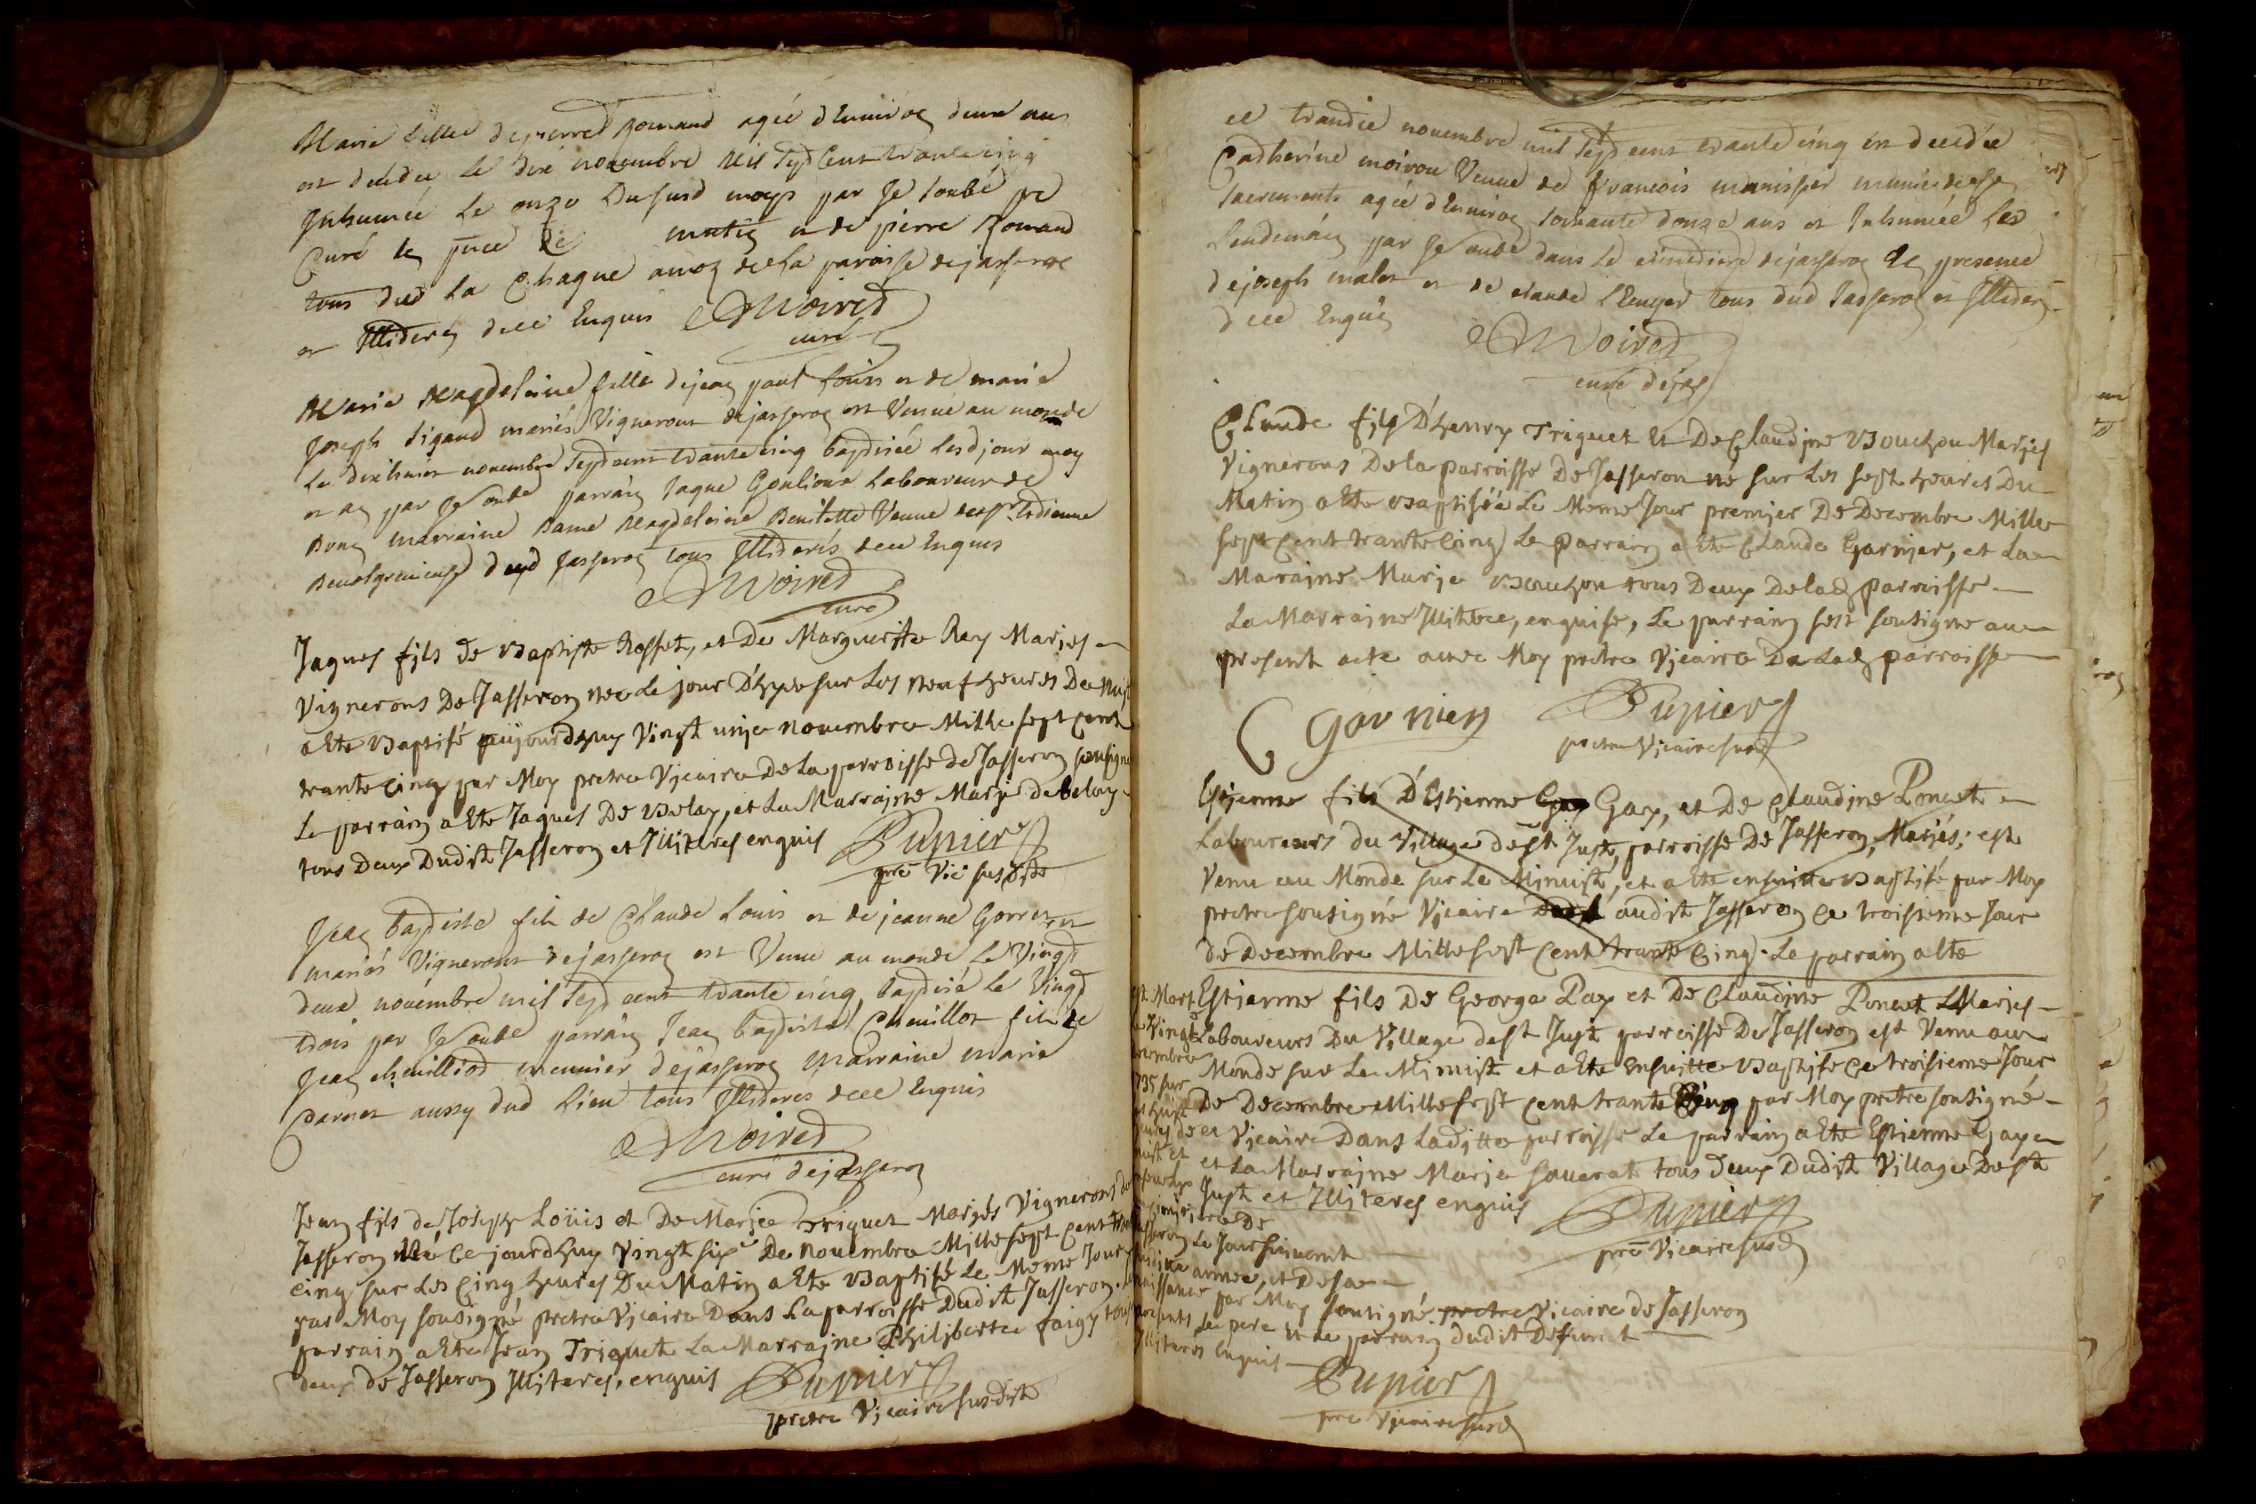 Marie fille de pierre Romand agée d'environ deux ans
est decedee le dixe novembre Mil Sept Cent trante cinq
Inhumée le onze du susd moys par Je soubé pre
Curé en pnce de et de pierre Romand
tous de la Chaque de la paroisse de jasseron
et Illiderés de ce Enquis Moired
curé
Marie Magdeleine fille de jean paul Louis et de marie
Joseph Sigaud mariés Vignerons de jasseron est Venue au monde
Le dixhuit novembre Sept cent trante cinq baptisée lesd jour moy
et an par Je soubé parrain Jaque Goulioux Laboureur de
marraine Dame Magdeleine Venue
dud Jasseron tous Illiderés de ce Enquis
Moired
curé
Jaques fils de Baptiste Rosset, et De Marguerite Ray Mariés
Vignerons De Jasseron née Le jour D'hyer sur Les neuf heures Du Nuit
a Ete Baptisé aujourdhuy Vingt unje novembre Mille sept cent
trante cinq par Moy pretre Vjcaire De La parroisse de Jasseron sousigné
Le parrain a Ete Jaques De Belay, et La Marrajne Marje de belay
tous Deux Dudit Jasseron et Illjteres enquis Pupier
pre Vic susdit
Jean baptiste fils de Claude Louis et de jeanne Gorrex
mariés Vignerons de jasseron est Venu au monde Le Vingt
deux novembre mil Sept cent trante cinq, baptisé le Vingt
trois par Je soubé parrain Jean baptiste Chevillot fils de
Jean chevilliod meunier de jasseron marraine marie
parnet aussy dud Lieu tous Illideres de ce Enquis
Moired
curé de jasseron
Jean fjls de Joseph Loüis et De Marjee Triquet Marjés Vignerons de
Jasseron Né ce jourdhuy Vingt six De novembre Mille sept cent trante
cinq sur Les Cinq heures Du Matin a Ete Baptisé Le Meme Jour
par Moy sousigné pretre Vjcaire Dans La parroisse Dudit Jasseron. Le
parrain a Ete Jean Triquet La Marrajne Philjberte faigy tous
deux de Jasseron Illjteres, enquis Pupier
pretre Vjcaire susdit
Le trandie novembre mil Sept cent trante cinq est decedée
Catherine moiron Veuve de francois manissier munie de ses
Sacrements agée d'Environ soixante douze ans et Inhumée Le
Lendemain par Je soubé dans le cimediere de jasseron En presence
de joseph malet et de claude tous dud Jasseron et Illider
de ce Enquis
Moired
curé de jas
Claude fjls D'henry Triquet et De Claudjne Bouchon Marjes
Vignerons De la parroisse De Jasseron né sur Les sept heures Du
Matin a Ete Baptisée Le Meme Jour premjer De Decembre Mille
sept Cent trante Cinq Le Parrain a Ete Claude Garnjer, et La
Marajne Marje Bouchon tous Deux De lad parroisse
La Marrajne Illitere, enquise, Le parrain s'est sousigné au
present acte avec Moy pretre Vjcaire De Lad parroisse
C Garnier Pupier
pretre Vjcaire susd
Estjenne fils D'Estjenne Gay Gay, et De Claudjne Poncet
Laboureurs du Village de St Just, parroisse De Jasseron, Marjés; est
Venu au Monde sur Le Minuit, et a Ete ensuitte Baptisé par Moy
pretre sousigné Vjcaire audit Jasseron ce troisieme Jour
de Decembre Mille sept cent trante Cinq. Le parrain a Ete
Estjenne fils De George Pay et De Claudjne Poncet Marjes
Laboureurs Du Village de St Just parroisse De Jasseron est Venu au
Monde sur Le Minuit et a Ete Ensuitte Baptise ce troisieme Jour
De Decembre Mille sept cent trante Cinq par Moy pretre sousigné
Vjcaire Dans Laditte parroisse Le parrain a Ete Estienne Gay
et La Marrajne Marje Saverat tous Deux Dudit Village De St
Just et Illjteres enquis Pupier
pre Vicaire susd
est Mort
le Vingt
735 sur
les huit
heures de
nuit et
cimetjere de
Jasseron Le Jour suivant
annee, et De sa
naissance par Moy sousigné pretre Vicaire de Jasseron
presents Le pere et Le parrain dudit Defunct
Illjteres Enquis
Pupier
pre Vjcaire susd